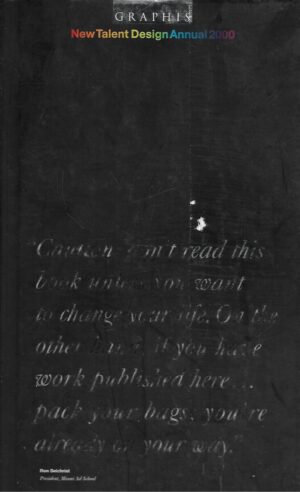 GRAPHIS
New Talent Design Annual 2000
"Caution don't read this
book unless you want
to change your life. On the
other hand, if you have
work published here...
pack your bags, you're
already on your way."
Ron Seichrist
President, Miami Ad School